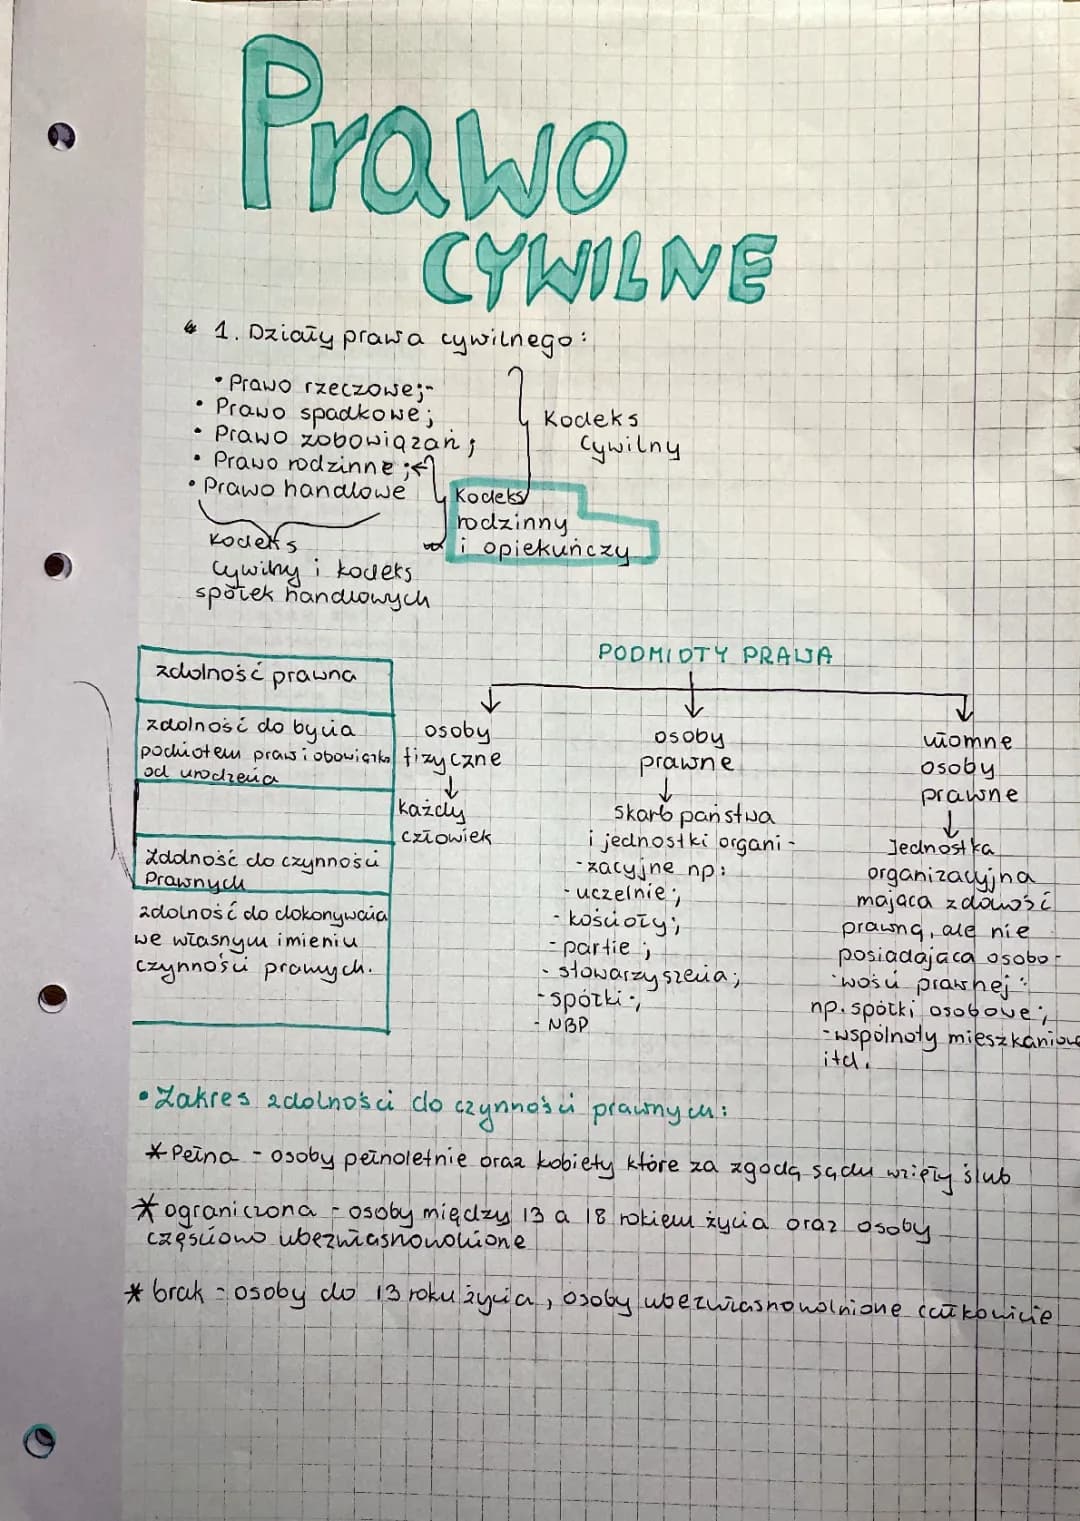 Prawo
CYWILNE
1. Działy prawa cywilnego:
• Prawo rzeczowe;-
• Prawo spadkowe;
• Prawo zobowiązań;
• Prawo rodzinne;
• Prawo handlowe
Kodeks
Cywilny
Kodeks
rodzinny
i opiekuńczy
Kodeks
cywilny i kodeks
spółek handlowych
zdolność prawna
zdolność do bycia
podmiotem praw i obowiązko
od urodzenia
Zdolność do czynności
Prawnych
zdolność do dokonywania
we własnym imieniu
czynności prawnych.
PODMIOTY PRAWA
osoby
fizyczne
każdy
człowiek
osoby
prawne
skarb państwa
i jednostki organi-
-zacyjne np:
- uczelnie;
- kościoły;
- partie;
- stowarzyszenia;
- spółki;
- NBP
ułomne
osoby
prawne
Jednostka
organizacyjna
mająca zdolność
prawną, ale nie
posiadająca osobo-
wości prawnej:
np. spółki osobowe;
- wspólnoty mieszkaniowe
itd.
• Zakres zdolności do czynności prawnych:
* Pełna - osoby pełnoletnie oraz kobiety które za zgodą sądu wzięły ślub
* ograniczona - osoby między 13 a 18 rokiem życia oraz osoby
częściowo ubezwłasnowolnione
* brak - osoby do 13 roku życia, osoby ubezwłasnowolnione całkowicie